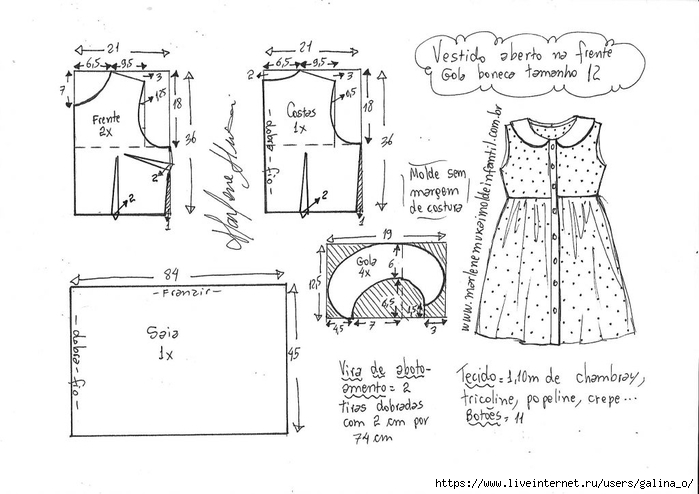 Vestido aberto na frente
Gola boneca tamanho 12
21
6,5
9,5
3
7
1,25
18
36
Frente
2x
2
2
1
21
6,5
9,5
3
2
0,5
18
36
Costas
1x
- dobra - fio -
2
1
Molde sem
margem
de costura
www.marlenemukaimoldeinfantil.com.br
84
- Franzir -
Saia
1x
- dobra - fio -
45
19
12,5
Gola
4x
6
4,5
1,5
4,5
7
3
Vira de aboto-
amento = 2
tiras dobradas
com 2 cm por
74 cm
Tecido = 1,10m de chambray,
tricoline, popeline, crepe...
Botões = 11
https://www.liveinternet.ru/users/galina_o/